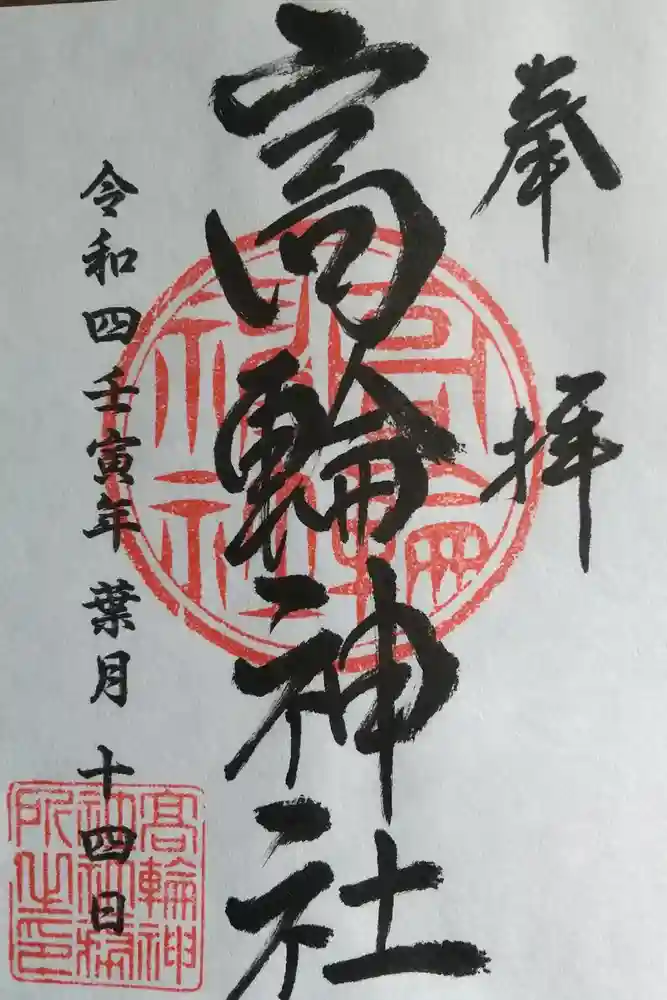 奉拝
高輪神社
令和四壬寅年 葉月 十四日
高輪神社
高輪神
社社務
所之印